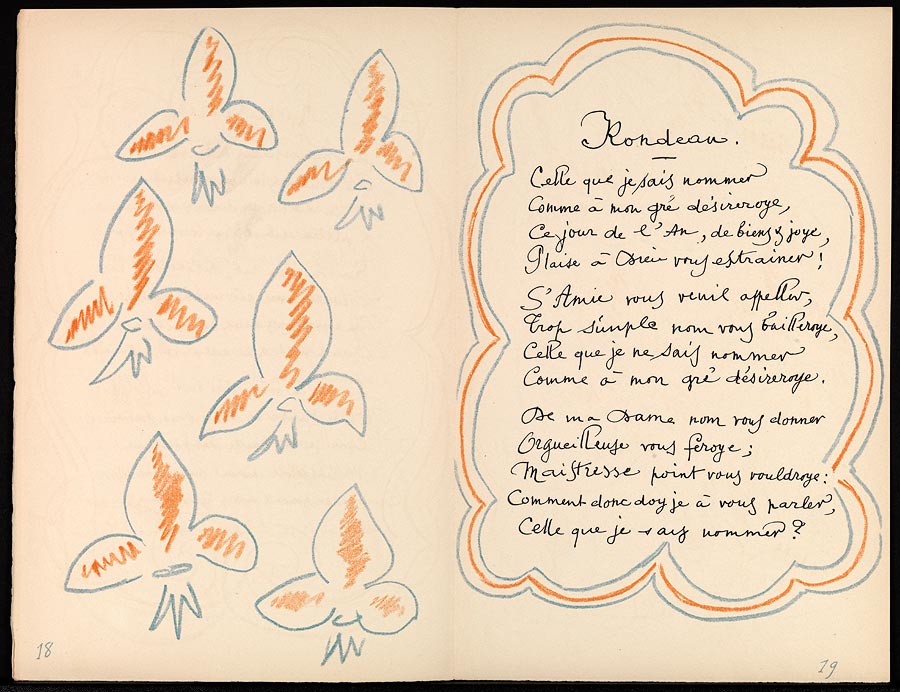 18
Rondeau.
Celle que je sais nommer
Comme à mon gré désireroye,
Ce jour de l'An, de biens & joye,
Plaise à Dieu vous estrainer !
S'Amie vous veuil appeller,
Trop simple nom vous bailleroye,
Celle que je ne sais nommer
Comme à mon gré désireroye.
De ma Dame nom vous donner
Orgueilleuse vous feroye ;
Maistresse point vous vouldroye :
Comment donc doy je à vous parler,
Celle que je sais nommer ?
19